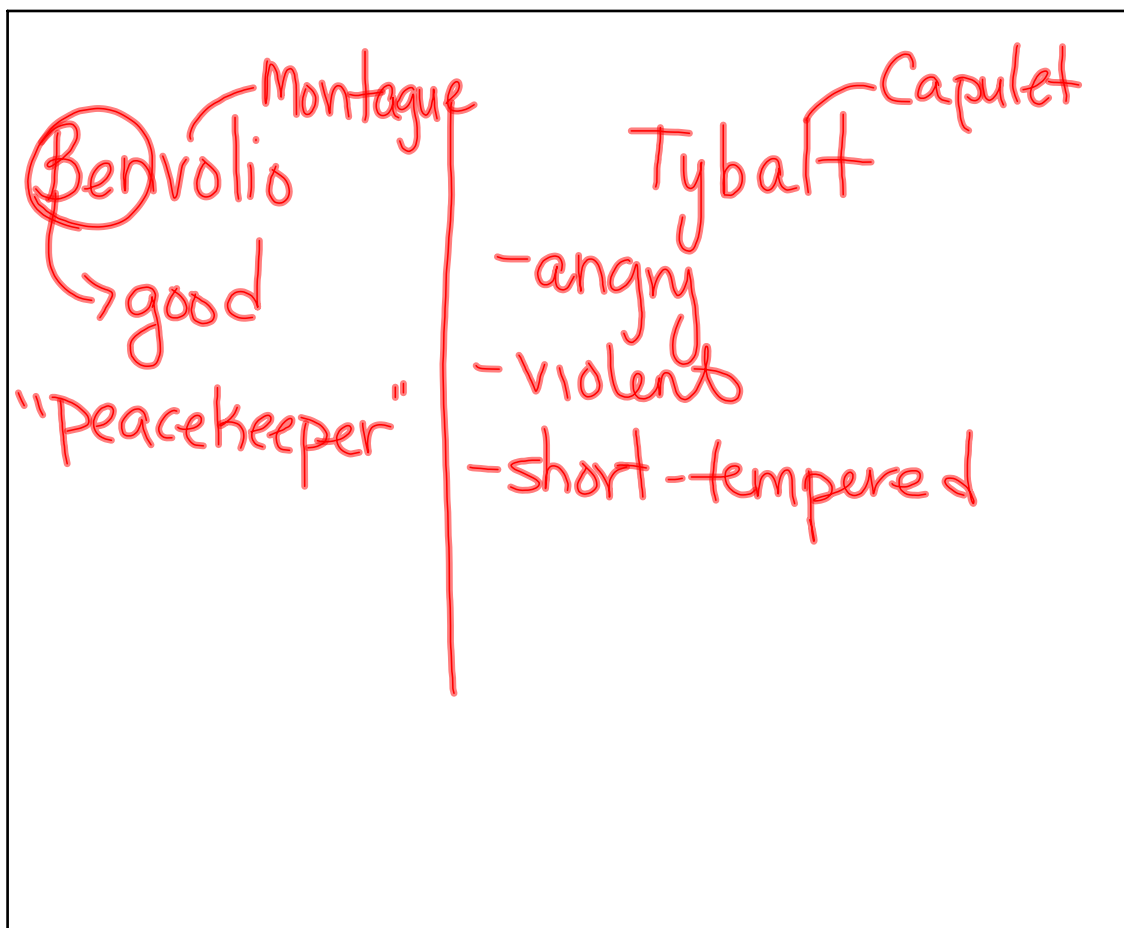 Montague
Benvolio
good
"peacekeeper"
Capulet
Tybalt
-angry
-violent
-short-tempered